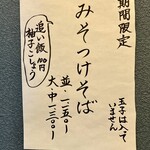 期間限定
みそつけそば
玉子は入って
いません
並・一二五〇ー
大・中一三〇〇ー
追い飯100円
柚子こしょう